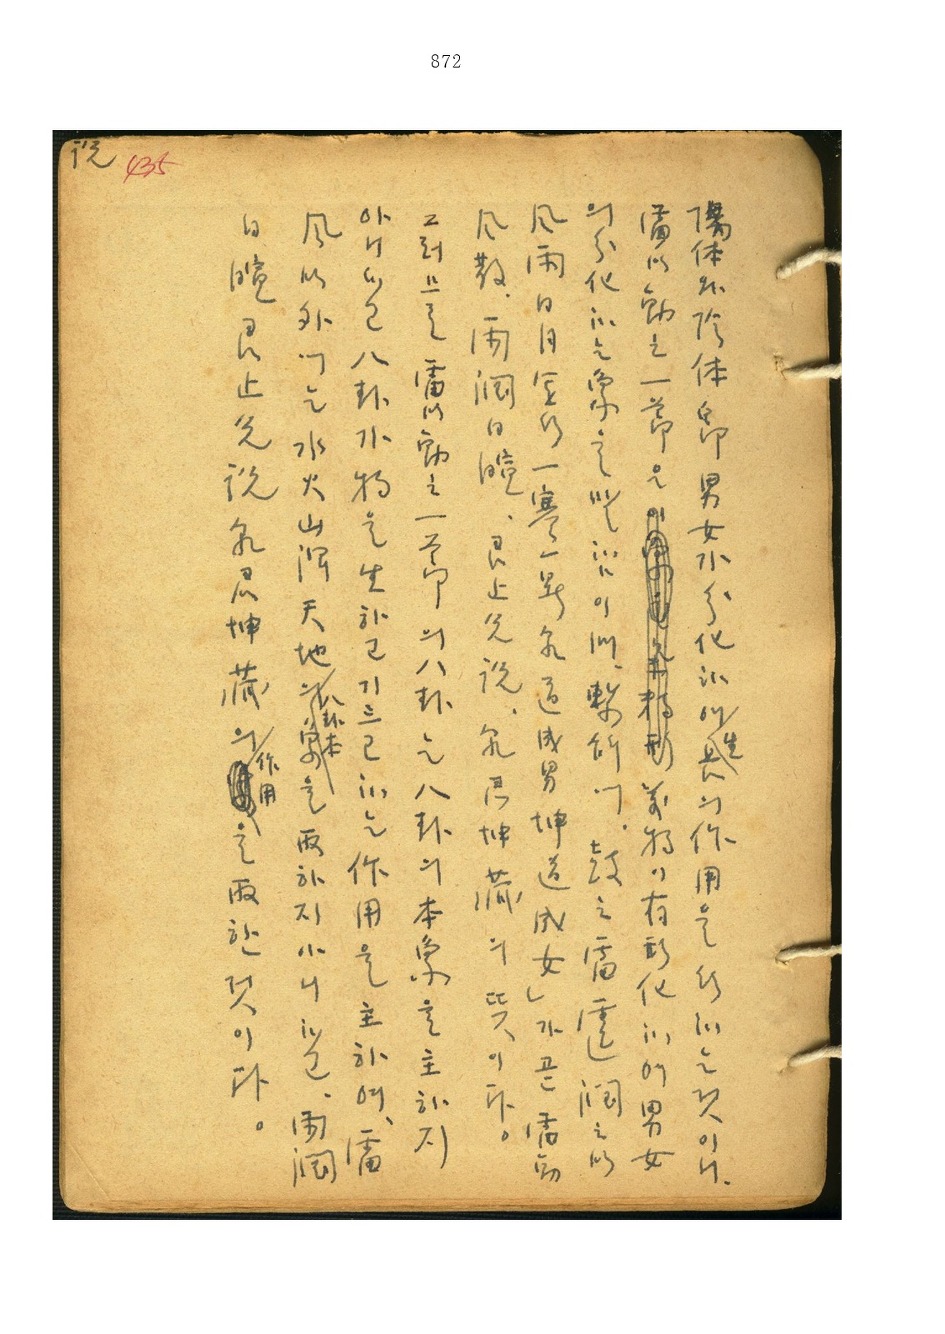 872
説 435
陽体와 陰体 卽 男女가 分化하여 生長의 作用을 行하는 것이니.
雷以動之一節은 萬物이 有形化하여 男女
의 分化하는 象을 말함이며, 繫辭에, 鼓之雷霆 潤之以
風雨 日月 運行 一寒一暑 乾道成男 坤道成女」가 곧 雷動
風散、雨潤 日晅、艮止 兌説、乾君 坤藏의 뜻이다。
그러므로 雷以動之一節의 八卦는 八卦의 本象을 主하지
아니하고 八卦가 物을 生하고 기르고 하는 作用을 主하여、雷
風以外에는 水火山澤天地의 八卦本象을 取하지 아니하고、雨潤
日晅 艮止 兌説 乾君 坤藏의 作用을 取한 것이다。